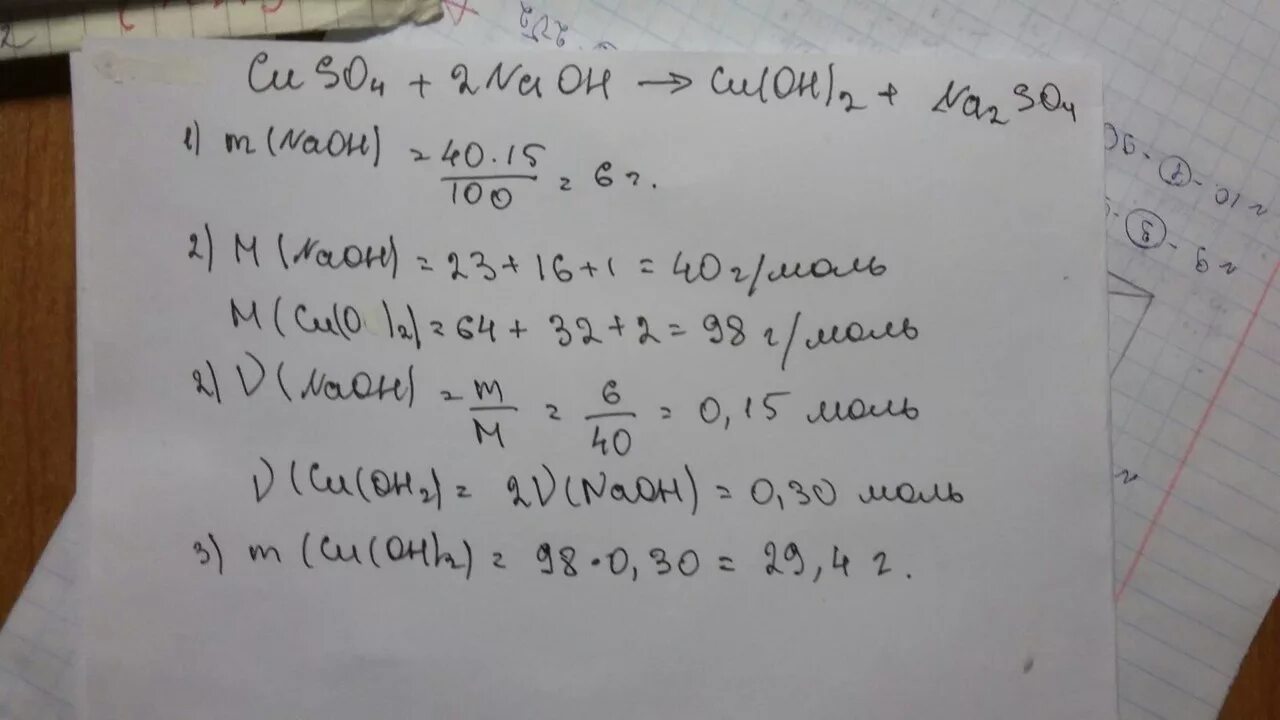 CuSO₄ + 2NaOH → Cu(OH)₂ + Na₂SO₄
1) m(NaOH) = 40·15/100 = 6 г.
2) M(NaOH) = 23+16+1 = 40 г/моль
M(Cu(O )₂) = 64+32+2 = 98 г/моль
2) ν(NaOH) = m/M = 6/40 = 0,15 моль
ν(Cu(OH₂) = 2ν(NaOH) = 0,30 моль
3) m(Cu(OH)₂) = 98·0,30 = 29,4 г.